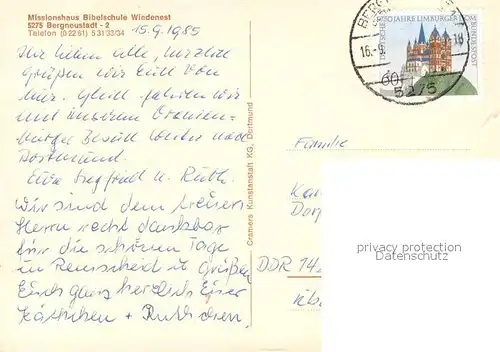 Missionshaus Bibelschule Wiedenest
5275 Bergneustadt - 2
Telefon (0 22 61) 5 31 33/34
15.9.1985
Ihr lieben alle, herzliche
Grüßen wir Euch von
hier. Gleich fahren wir
mit unserem Oranien-
burger Besuch weiter nach
Dortmund.
Eure Siegfried u. Ruth.
Wir sind dem treuen
Herrn recht dankbar
für die schönen Tage
in Remscheid u. grüßen
Euch ganz herzlich Eure
Käthchen + Ruthchen.
Cramers Kunstanstalt KG, Dortmund
750 JAHRE LIMBURGER DOM
DEUTSCHE BUNDESPOST
60
16.-9.
18
5275
Familie
DDR
privacy protection
Datenschutz